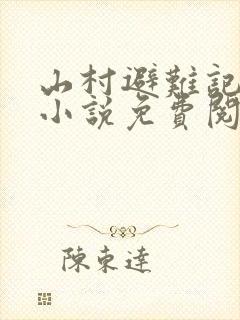 山村避難記
小説免費閱
陳東達